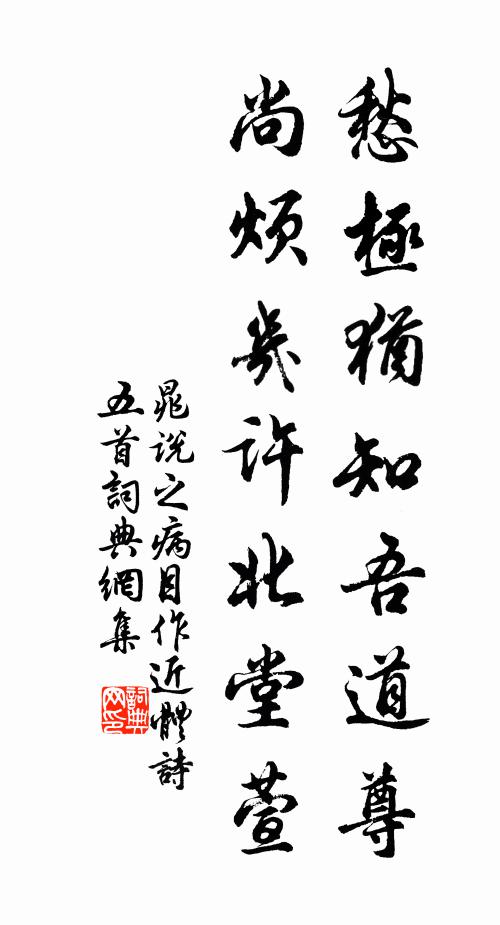 愁極猶知吾道尊
尚煩幾許北堂萱
晁說之病目作近體詩
五首詞典網集
詞典网印